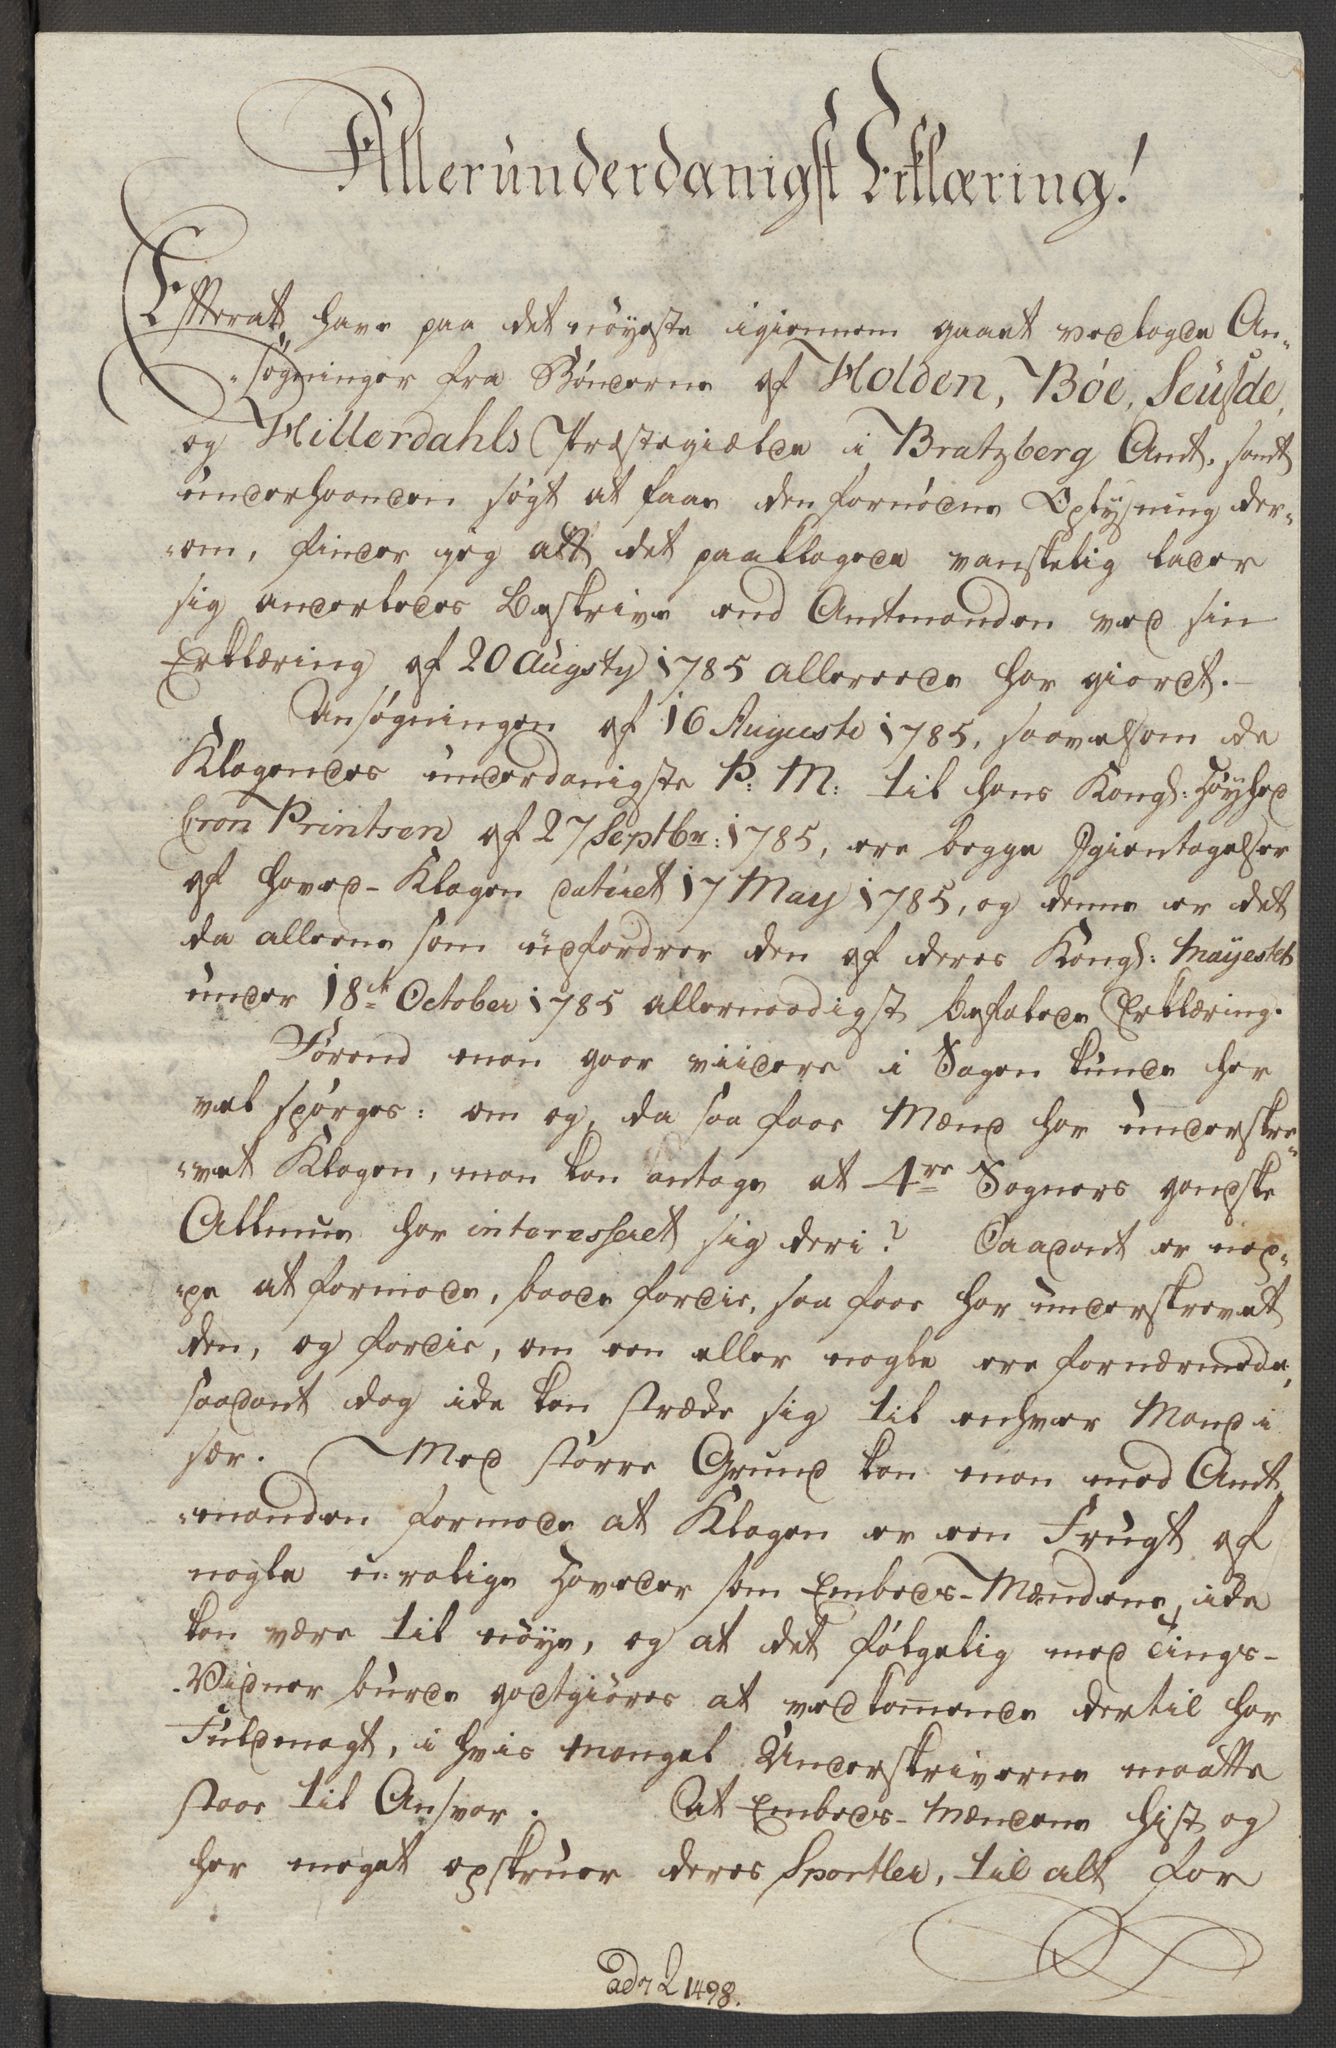 Allerunderdanigst Erklæring!
Efterat have paa det nöyeste igiennem gaaet vedlagde An-
-søgninger fra Bönderne af Holden, Böe, Seufde,
og Hitterdahls Præstegiælde i Bratzberg Amt, samt
underhaanden søgt at faae den fornödne Oplysning der-
-om, finder jeg att det paaklagede vanskelig lader
sig anderledes beskrive end Amtmanden ved sin
Erklæring af 20 Augsty 1785 allereede har giordt.-
Ansøgningen af 16 Augusti 1785, saavelsom de
Klagendes underdanigste P: M: til hans Kongl: Höyhed
Cron Printsen af 27 Septbr: 1785, ere begge Igientagelser
af Hoved-Klagen dateret 17 May 1785, og denne er det
da alleene som udfordrer den af deres Kongl: Mayestet
under 18de October 1785 allernaadigst befalede Erklæring.
Förend man gaar viidere i Sagen kunde her
vel spørges: om og, da saa faae Mænd har underskre-
-vet Klagen, man kan antage at 4re Sogners gandske
Allmue har interesseret sig deri? Saadant er nep-
-pe at formode, baade fordie, saa faae har underskrevet
den, og fordie, om een eller nogle ere fornærmede,
saadant dog ike kan stræke sig til enhver Mand i
sær. Med större Grund kan man med Amt
-manden formode at Klagen er een Frugt af
nogle urolige Hoveder som Embeds-Mændene ike
kan være til nöye, og at det fölgelig med Tings-
-Vidner burde godtgiöres at vedkommende dertil har
Fuldmagt, i hvis Mangel Underskriverne maatte
staae til Ansvar. At Embeds-Mændene hist og
her meget opskruer deres Sportler, til alt for
1498.